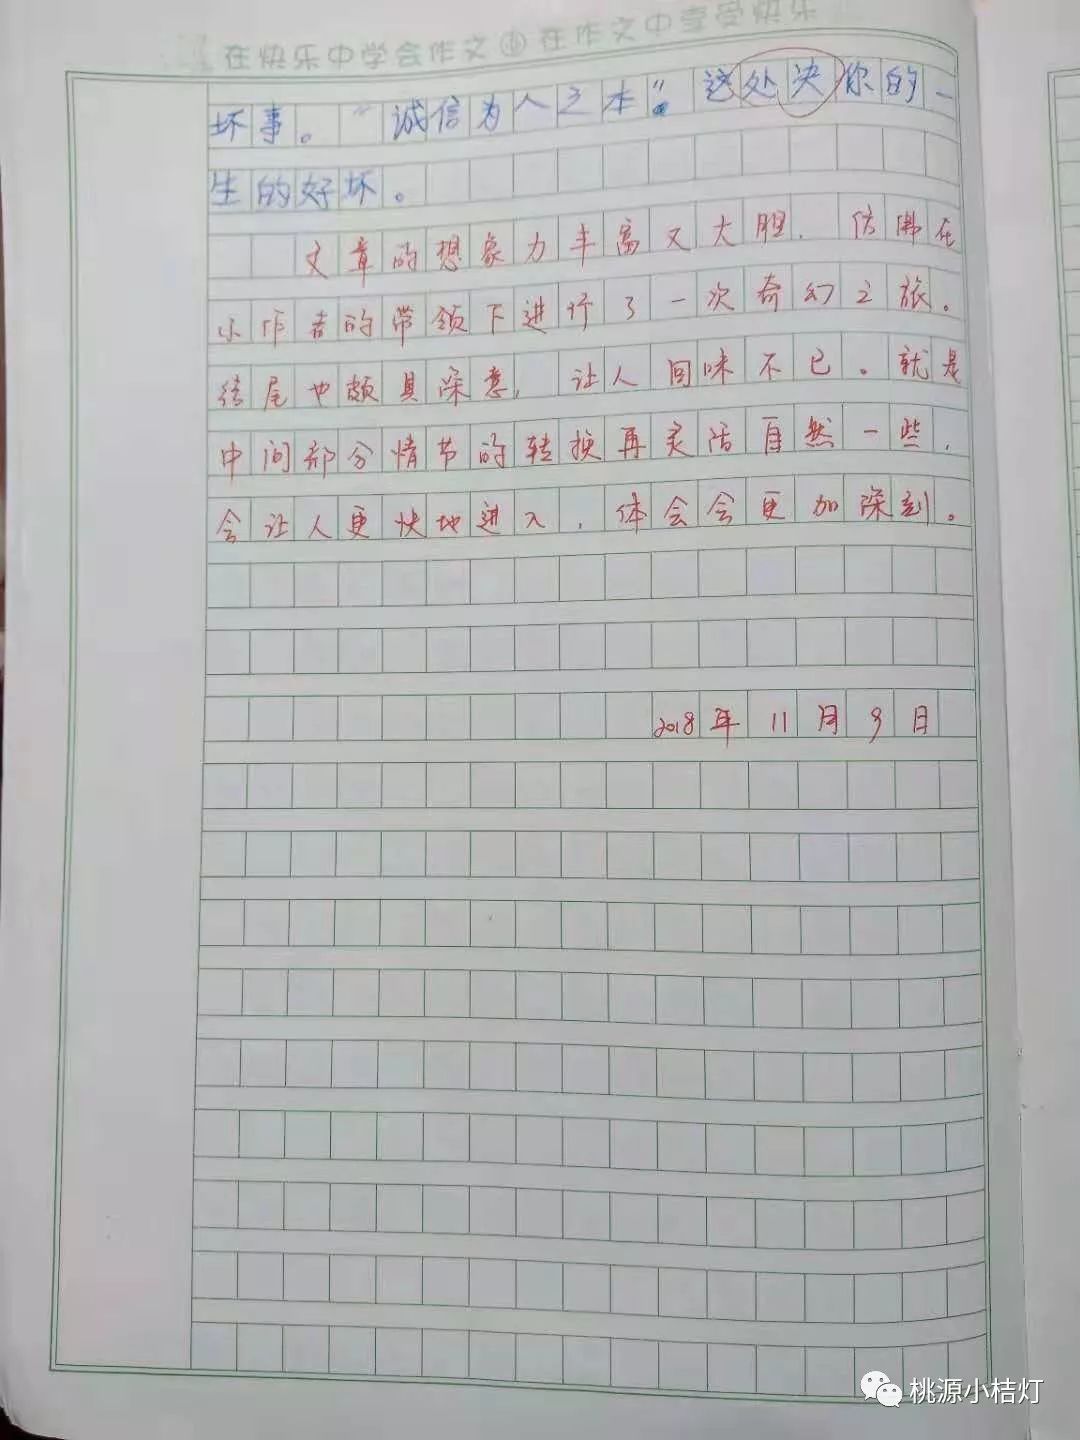 在快乐中学会作文 在作文中享受快乐
坏事。“诚信为人之本”。这处决你的一
生的好坏。
文章的想象力丰富又大胆，仿佛在
小作者的带领下进行了一次奇幻之旅。
结尾也颇具深意，让人回味不已。就是
中间部分情节的转换再灵活自然一些，
会让人更快地进入，体会会更加深刻。
2018年11月9日
桃源小桔灯